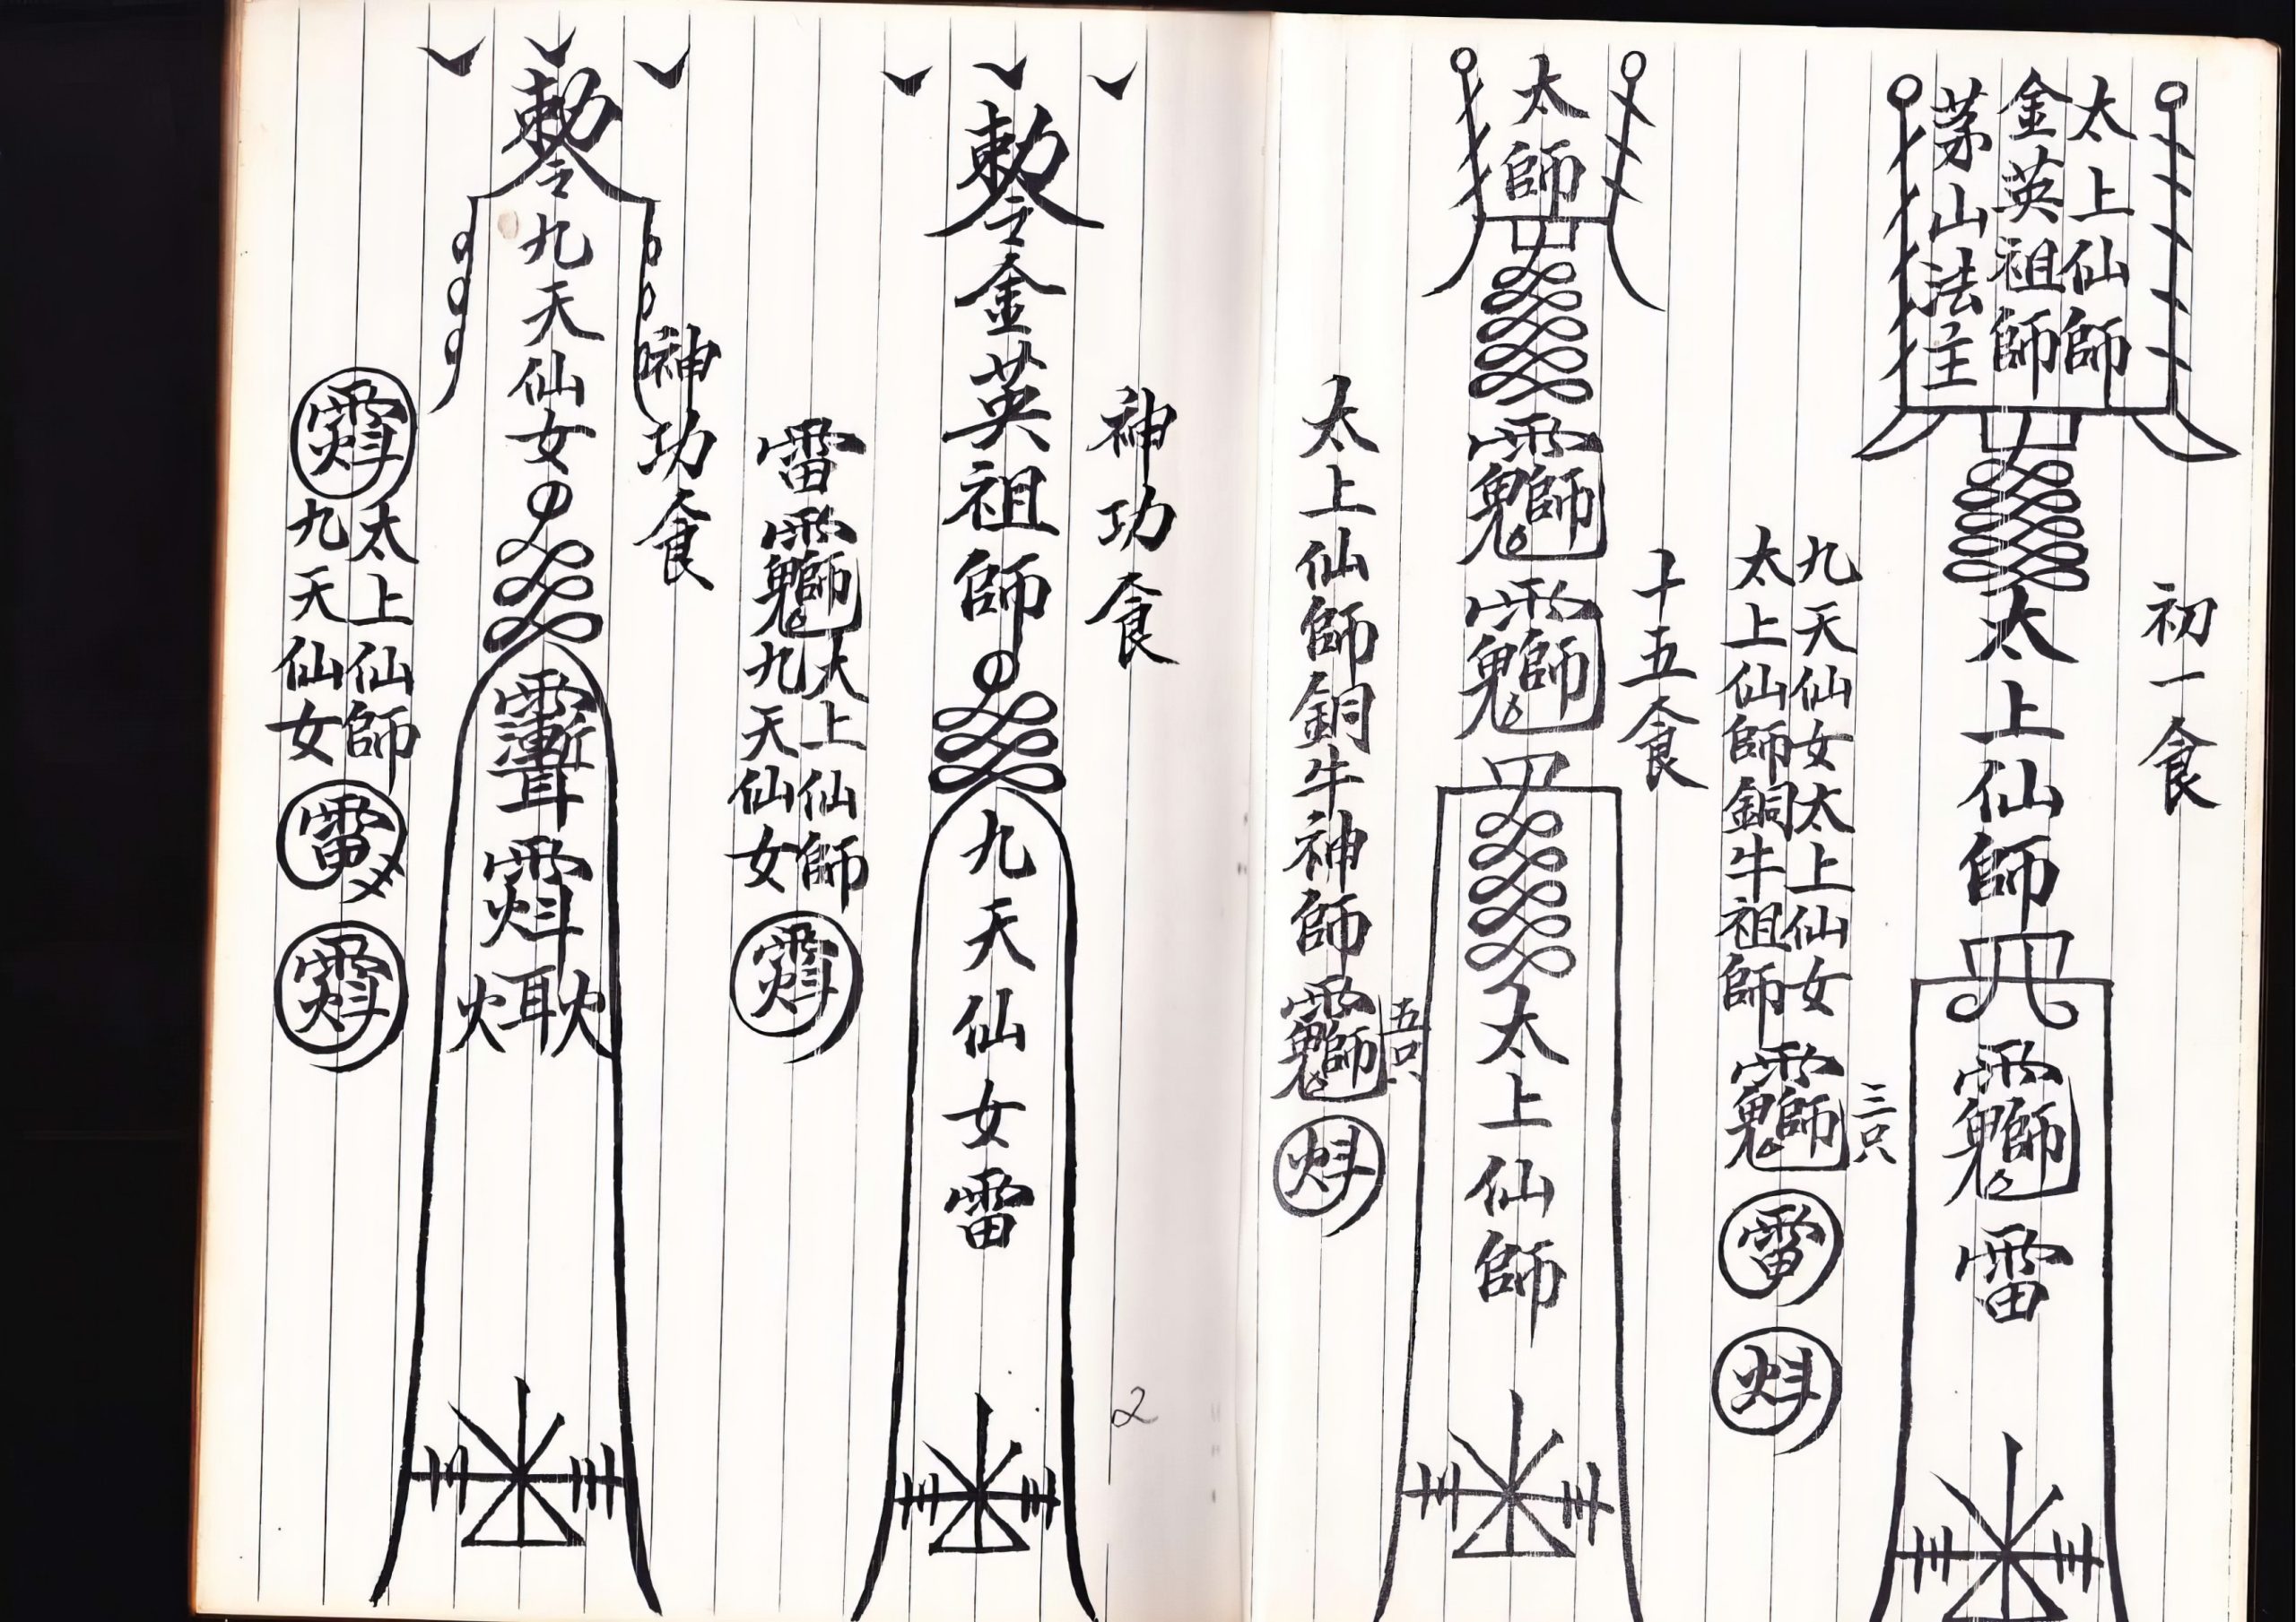 初一食
太上仙師
金英祖師
茅山法主
太上仙師
雷
三只
九天仙女太上仙女
太上仙師銅牛祖師
雷
十五食
太師
太上仙師
五只
太上仙師銅牛神師
神功食
勅令金英祖師
九天仙女雷
雷
太上仙師
九天仙女
2
神功食
勅令九天仙女
太上仙師
九天仙女
雷